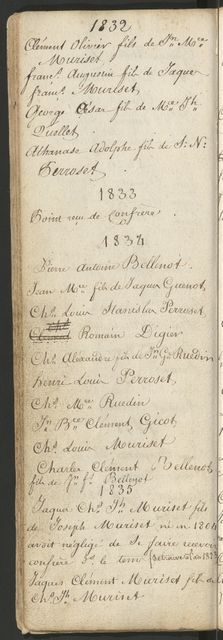 1832
Clément Olivier fils de Jn Mce
Muriset.
franç. Augustin fils de Jaques
franç. Muriset
George César fils de Mce Jh
Quellet.
Athanase Adolphe fils de J: N:
Perroset.
1833
Point reçu de Confrère.
1834
Pierre Antoine Bellenot.
Jean Mce fils de Jaques Guenot,
Chs Louis Stanislas Perroset.
Romain Digier
Chs Alexandre fils de Jn Ge Ruedin
Henri Louis Perroset.
Chs Mce Ruedin
Jn Bte Clément, Gicot
Chs Louis Muriset
Charles Clément Bellenot,
fils de Jn fs Bellenot
1835
Jaques Chs Jh Muriset fils
de Joseph Muriset né in 1804
avoit négligé de se faire recevoir
confrère ds le tems
Jaques Clément Muriset fils de
Chs Jh Muriset